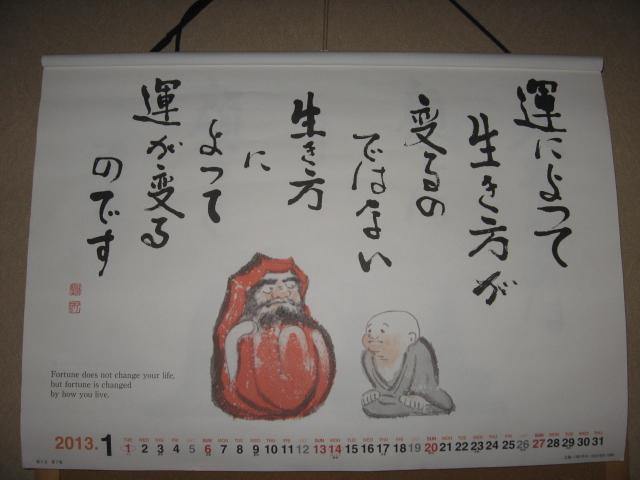 運によって
生き方が
変るの
ではない
生き方
に
よって
運が変る
のです
Fortune does not change your life,
but fortune is changed
by how you live.
2013.1
TUE WED THU FRI SAT SUN MON TUE WED THU FRI SAT SUN MON TUE WED THU FRI SAT SUN MON TUE WED THU FRI SAT SUN MON TUE WED THU
1 2 3 4 5 6 7 8 9 10 11 12 13 14 15 16 17 18 19 20 21 22 23 24 25 26 27 28 29 30 31